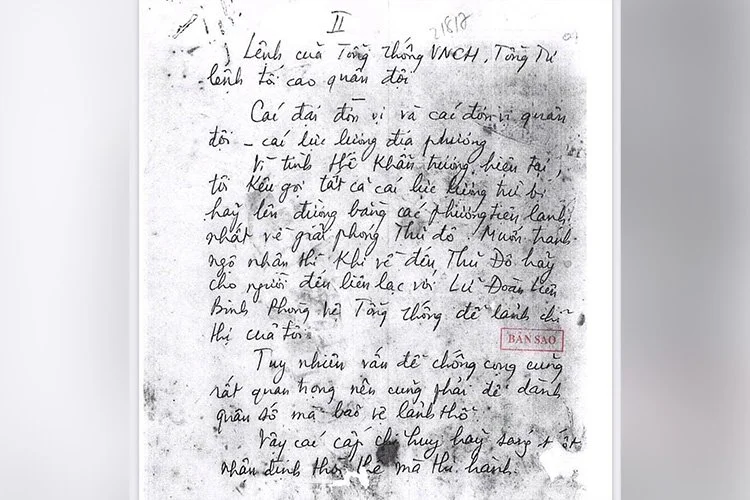 II
21817
Lệnh của Tổng thống VNCH, Tổng Tư
lệnh tối cao quân đội
Các đại đơn vị và các đơn vị quân
đội - các lực lượng địa phương
Vì tình thế khẩn trương hiện tại,
tôi kêu gọi tất cả các lực lượng trừ bị
hãy lên đường bằng các phương tiện lanh
nhất về giải phóng Thủ đô. Muốn tránh
ngộ nhận thì khi về đến Thủ Đô hãy
cho người đến liên lạc với Lữ Đoàn Liên
Binh Phòng Vệ Tổng thống để lãnh chỉ
thị của tôi.
BẢN SAO
Tuy nhiên vấn đề chống cộng cũng
rất quan trọng nên cũng phải để dành
quân số mà bảo vệ lãnh thổ.
Vậy các cấp chỉ huy hãy sáng suốt
nhận định thời thế mà thi hành.